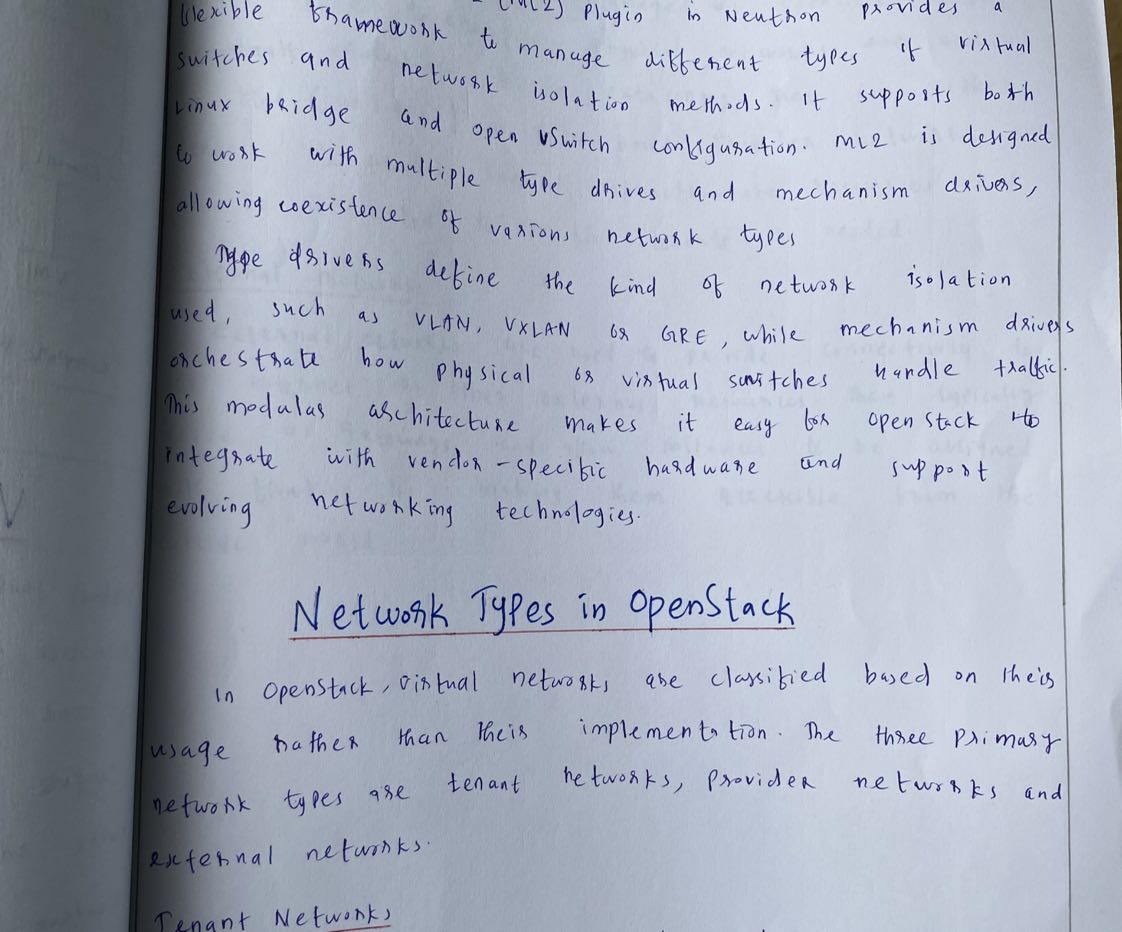 flexible framework to manage different types of virtual
(ML2) Plugin in Neutron provides a
switches and network isolation methods. It supports both
Linux bridge and open vSwitch configuration. ML2 is designed
to work with multiple type drives and mechanism drivers,
allowing coexistence of various network types
Type drivers define the kind of network isolation
used, such as VLAN, VXLAN or GRE, while mechanism drivers
orchestrate how physical or virtual switches handle traffic.
This modular architecture makes it easy for open stack to
integrate with vendor-specific hardware and support
evolving networking technologies.
Network Types in OpenStack
In OpenStack, virtual networks are classified based on their
usage rather than their implementation. The three primary
network types are tenant networks, provider networks and
external networks.
Tenant Networks